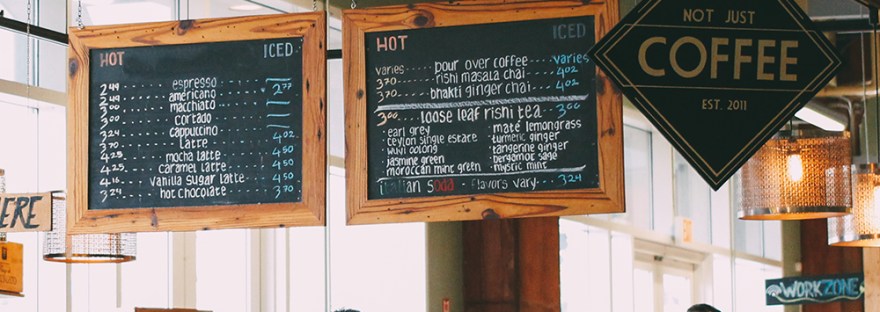 HOT ICED
2.49 espresso
2.49 americano 2.77
3.00 macchiato
3.00 cortado
3.24 cappuccino
3.70 latte 4.02
4.25 mocha latte 4.50
4.25 caramel latte 4.50
4.16 vanilla sugar latte 4.50
3.24 hot chocolate 3.70
HOT ICED
varies pour over coffee varies
3.70 rishi masala chai 4.02
3.70 bhakti ginger chai 4.02
3.00 loose leaf rishi tea 3.00
• earl grey • maté lemongrass
• ceylon single estate • turmeric ginger
• wuyi oolong • tangerine ginger
• jasmine green • bergamot sage
• moroccan mint green • mystic mint
italian soda flavors vary 3.24
NOT JUST
COFFEE
EST. 2011
ERE
WORKZONE